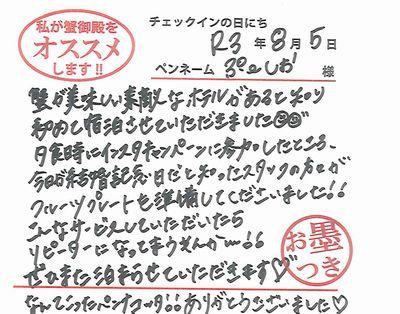 私が蟹御殿を
オススメ
します!!
チェックインの日にち
R3年8月5日
ペンネーム 様
蟹が美味しい素敵なホテルがあると知り
初めて宿泊させていただきました
夕食時にインスタキャンペーンに参加したところ、
今日が結婚記念日だと知ったスタッフの方が
フルーツプレートを準備してくださいました!!
こんなサービスしていただいたら
リピーターになってまうもんが〜!!
ぜひまた泊まらせていただきます♡
お墨
つき
ありがとうございました♡